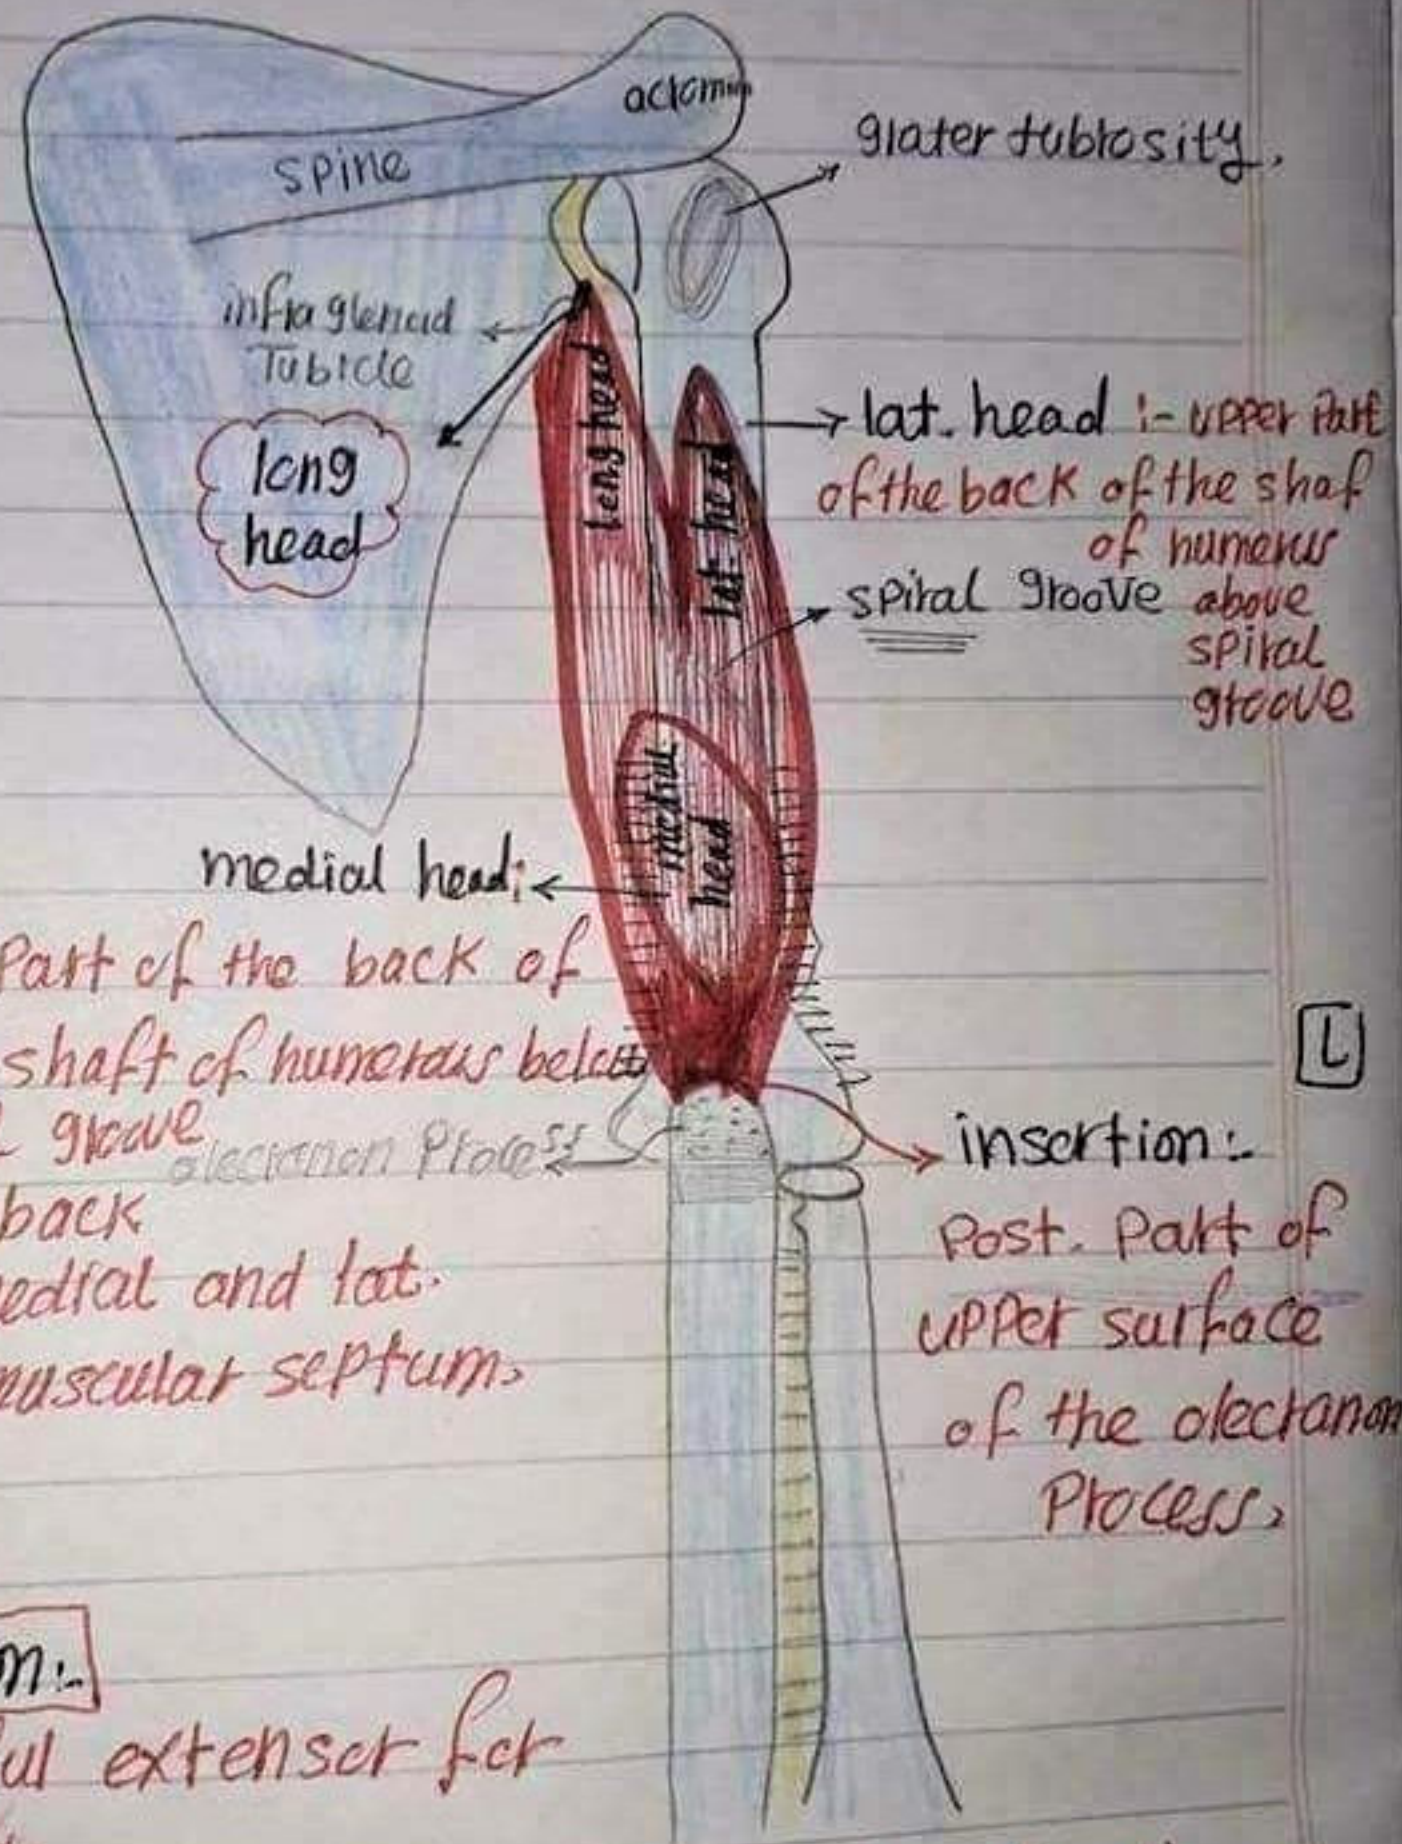 acromion
spine
greater tubrosity.
infra glenoid
Tubicle
long
head
long head
lat. head
lat. head :- upper Part
of the back of the shaf
of humerus
spiral groove above
spiral
groove
medial
head
medial head:
Part of the back of
shaft of humerous below
groove
olecranon Process
back
medial and lat.
muscular septum.
L
insertion:-
Post. Part of
upper surface
of the olecranon
Process.
n:-
ul extensor for